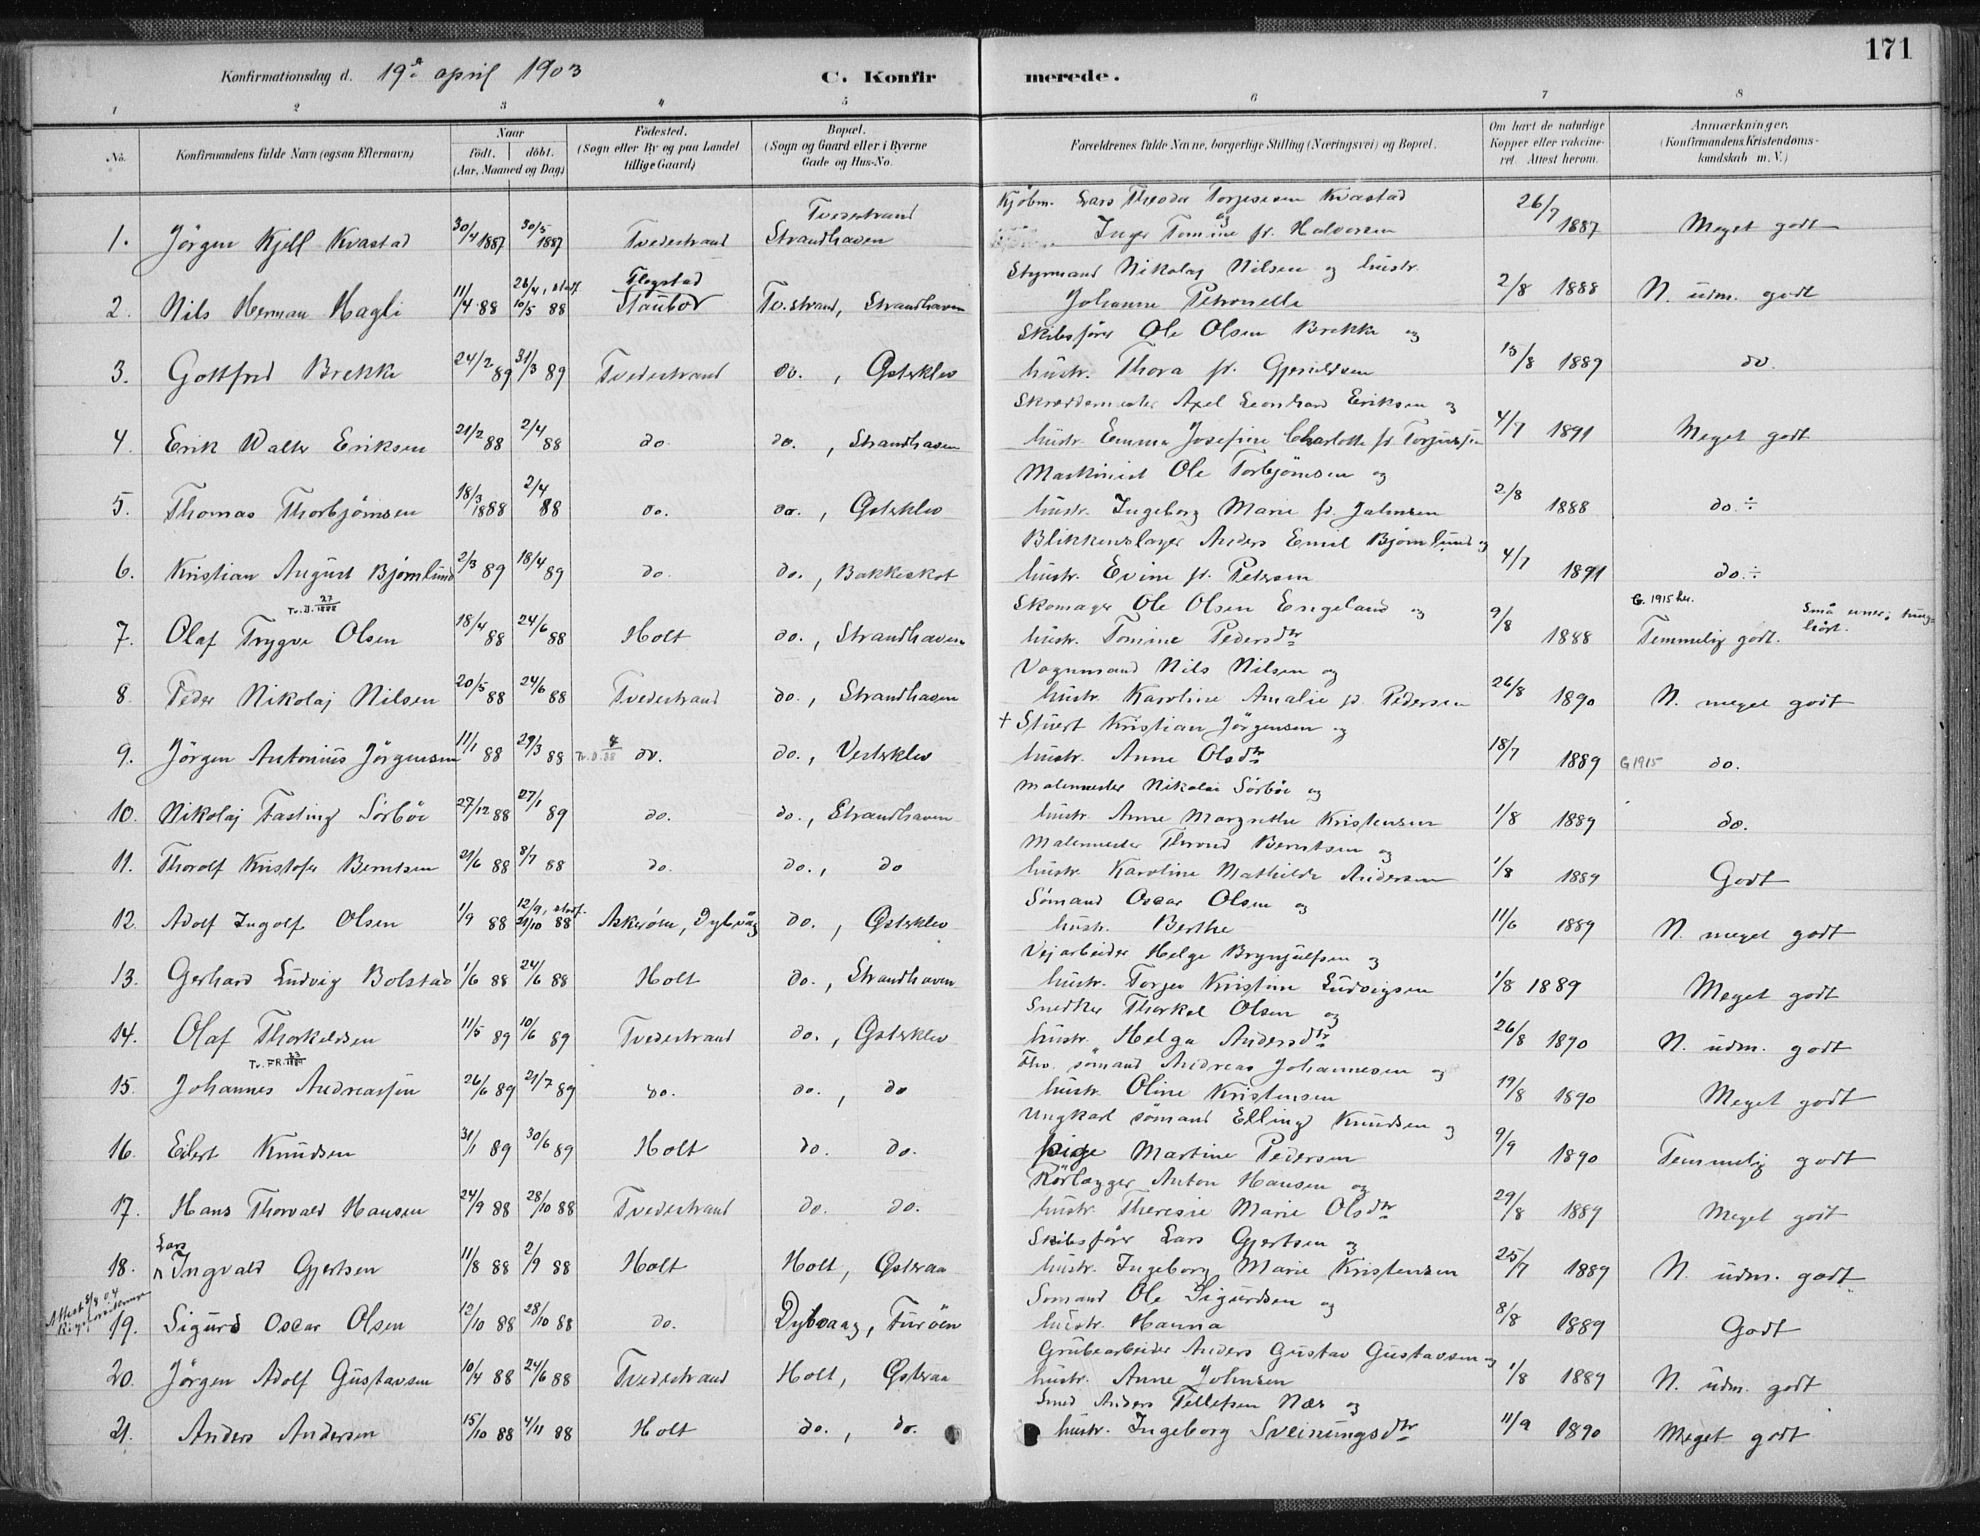 171
Konfirmationsdag d. 19de april 1903 C. Konfir merede.
1 2 3 4 5 6 7 8
No. Konfirmandens fulde Navn (ogsaa Efternavn) Naar födt. döbt. (Aar, Maaned og Dag) Födested. (Sogn eller By og paa Landet tillige Gaard) Bopæl. (Sogn og Gaard eller i Byerne Gade og Hus-No. Forældrenes fulde Navne, borgerlige Stilling (Næringsvei) og Bopæl. Om havt de naturlige Kopper eller vakcineret. Attest herom. Anmærkninger. (Konfirmandens Kristendomskundskab m. V.)
Tvedestrand Kjöbm. Lars Theodor Torjesesen Kvastad
1. Jörgen Kjell Kvastad 30/4 1887 30/5 1887 Tvedestrand Strandhaven og Inger Tomine f. Halvorsen 26/7 1887 Meget godt
Flogstad Styrmand Nikolaj Nilsen og hustr.
2. Nils Herman Hagli 11/4 88 26/4, stadf. 10/5 88 Staubö Tv.strand, Strandhaven Johanne Petronelle 2/8 1888 N. udm. godt
Skibsförer Ole Olsen Brekke og
3. Gottfred Brekke 24/2 89 31/3 89 Tvedestrand do., Østeklev hustr. Thora f. Gjeruldsen 15/8 1889 do.
Skræddermester Axel Leonhard Eriksen og
4. Erik Walter Eriksen 21/2 88 2/4 88 do. do., Strandhaven hustr. Emma Josefine Charlotte f. Torjussen 4/7 1891 Meget godt
Maskinist Ole Torbjörnsen og
5. Thomas Thorbjörnsen 18/3 1888 2/4 88 do. do., Østeklev hustr. Ingeborg Marie f. Jahnsen 2/8 1888 do. ÷
Blikkenslager Anders Emil Bjørnlund og
6. Kristian August Bjørnlund 2/3 89 18/4 89 do. do., Bakkeskot hustr. Evine f. Petersen 4/7 1891 do. ÷
Tv. D. 27/1888 Skomager Ole Olsen Engeland og G. 1915 her. Små evner; tung-
7. Olaf Trygve Olsen 18/4 88 24/6 88 Holt do., Strandhaven hustr. Tomine Pedersdtr 9/8 1888 Temmelig godt. hört.
Vognmand Nils Nilsen og
8. Peder Nikolaj Nilsen 20/5 88 24/6 88 Tvedestrand do., Strandhaven hustr. Karoline Amalie f. Pedersen 26/8 1890 N. meget godt
+ Stuert Kristian Jörgensen og
9. Jörgen Antonius Jörgensen 11/1 88 29/3 88 Tv. D. 4/88 do. do., Vesteklev hustr. Anne Olsdtr 18/7 1889 G 1915 do.
Malermester Nikolai Sörböe og
10. Nikolaj Fasting Sörböe 27/12 88 27/1 89 do. do., Strandhaven hustr. Anne Margrethe Kristensen 1/8 1889 do.
Malermester Thrond Berntsen og
11. Thorolf Kristofer Berntsen 21/6 88 8/7 88 do. do., do hustr. Karoline Mathilde Andersen 1/8 1889 Godt
Sömand Oscar Olsen og
12. Adolf Ingolf Olsen 1/9 88 12/9, stadf. 21/10 88 Askeröen, Dybvåg do., Østeklev hustr. Berthe 11/6 1889 N. meget godt
Vejarbeider Helge Brynjulfsen og
13. Gerhard Ludvig Bolstad 1/6 88 24/6 88 Holt do., Strandhaven hustr. Torjer Kristine Ludvigsen 1/8 1889 Meget godt
Snedker Thorkel Olsen og
14. Olaf Thorkeldsen 11/5 89 10/6 89 Tvedestrand do., Østeklev hustr. Helga Andersdtr 26/8 1890 N. udm. godt
Fhv. sömand Andreas Johannesen og
15. Johannes Andreassen 26/6 89 21/7 89 do. do., do hustr. Oline Kristensen 19/8 1890 Meget godt
Ungkarl sömand Elling Knudsen og
16. Eilert Knudsen 31/1 89 30/6 89 Holt do. do. pige Martine Pedersen 9/9 1890 Temmelig godt
Rörlægger Anton Hansen og
17. Hans Thorvald Hansen 24/9 88 28/10 88 Tvedestrand do. do. hustr. Theresie Marie Olsdtr 29/8 1889 Meget godt
Lars Skibsförer Lars Gjertsen og
18. Ingvald Gjertsen 11/8 88 2/9 88 Holt Holt, Østeraa hustr. Ingeborg Marie Kristensen 25/7 1889 N. udm. godt.
Attest 8/8 04 Sömand Ole Sigurdsen og
19. Sigurd Oscar Olsen 12/10 88 28/10 88 do. Dybvaag, Furöen hustr. Hanna 8/8 1889 Godt
Grubearbeider Anders Gustav Gustavsen og
20. Jörgen Adolf Gustavsen 10/4 88 24/6 88 Tvedestrand Holt, Østeraa hustr. Anne Johnsen 1/8 1889 N. udm. godt
Smed Anders Tellefsen Næs og
21. Anders Andersen 15/10 88 4/11 88 Holt do., do. hustr. Ingeborg Sveinungsdtr 11/9 1890 Meget godt